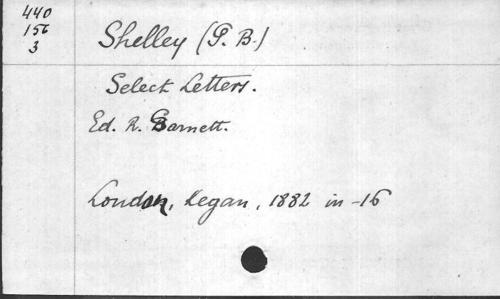 440
156
3
Shelley (P. B.)
Select Letters.
Ed. R. Garnett.
London, Kegan, 1882 in-16